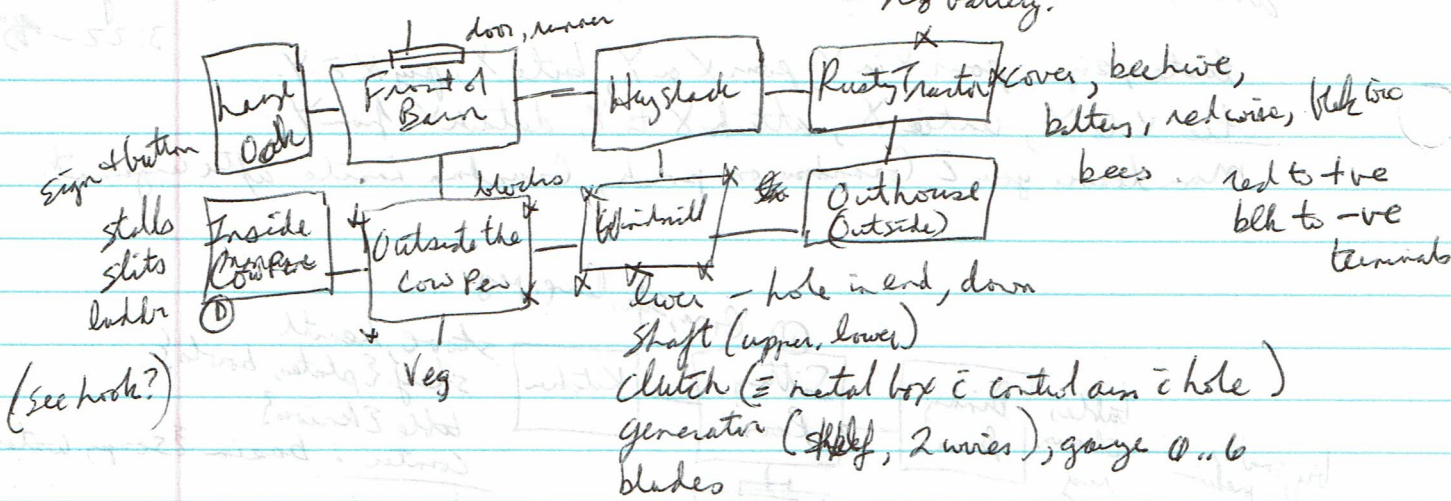 no battery.
door, runner
Large Oak
Front of Barn
Haystack
Rusty Tractor
cover, beehive,
battery, red wire, blk
bees
red to +ve
blk to -ve
terminals
sign + button
stalls
slits
ladder
Inside
Cow Pen
D
Outside the
Cow Pen
blocks
Windmill
Outhouse
(Outside)
(see hook?)
Veg
lever - hole in end, down
Shaft (upper, lower)
clutch (≡ metal box c̄ control arm c̄ hole)
generator (shelf, 2 wires), gauge 0..6
blades